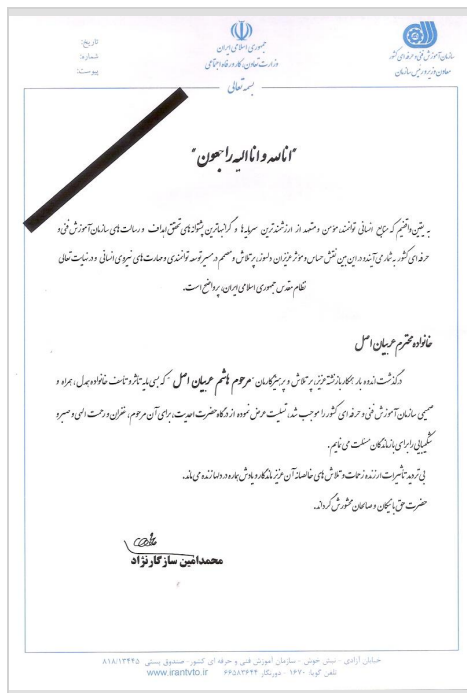 سازمان آموزش فنی و حرفه ای کشور
معاون وزیر و رئیس سازمان
جمهوری اسلامی ایران
وزارت تعاون، کار و رفاه اجتماعی
بسمه تعالی
تاریخ:
شماره:
پیوست:
"انا لله و انا الیه راجعون"
به یقین واقفیم که منابع انسانی توانمند، مؤمن و متعهد از ارزشمندترین سرمایه ها و گرانبهاترین پشتوانه های تحقق اهداف و رسالت های سازمان آموزش فنی و
حرفه ای کشور به شمار می آیند و در این بین نقش حساس و مؤثر عزیزان دلسوز، پرتلاش و مصمم در مسیر توسعه توانمندی و مهارت های نیروی انسانی و در نهایت تعالی
نظام مقدس جمهوری اسلامی ایران، پر واضح است.
خانواده محترم عربیان اصل
درگذشت اندوه بار همکار بازنشته عزیز، پرتلاش و پرهیزگارمان "مرحوم هاشم عربیان اصل" که بسی مایه تأثر و تأسف خانواده همدل، همراه و
صمیمی سازمان آموزش فنی و حرفه ای کشور را موجب شد، تسلیت عرض نموده از درگاه حضرت احدیت، برای آن مرحوم، غفران و رحمت الهی و صبر و
شکیبایی را برای بازماندگان مسئلت می نمایم.
بی تردید تأثیرات ارزنده زحمات و تلاش های خالصانه آن عزیز ماندگار و یادش هماره در دلها زنده می ماند.
حضرت حق با نیکان و صالحان محشورش گرداند.
محمدامین سازگارنژاد
خیابان آزادی - نبش خوش - سازمان آموزش فنی و حرفه ای کشور- صندوق پستی ۸۱۸/۱۳۴۴۵
تلفن گویا: ۱۶۷۰ - دورنگار ۶۶۵۸۳۶۴۴ www.irantvto.ir